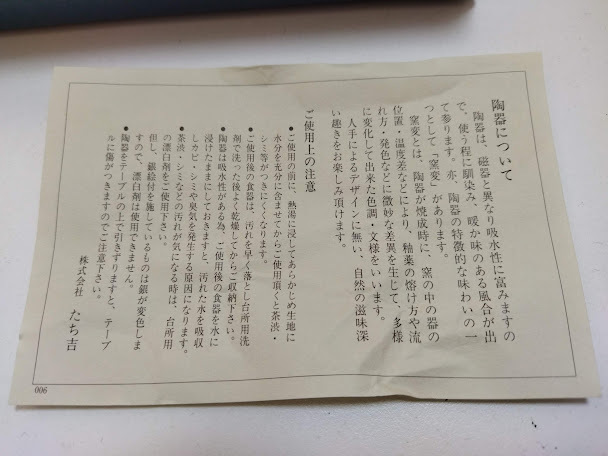 陶器について
陶器は、磁器と異なり吸水性に富みますの
で、使う程に馴染み、暖か味のある風合が出
て参ります。亦、陶器の特徴的な味わいの一
つとして「窯変」があります。
窯変とは、陶器が焼成時に、窯の中の器の
位置・温度差などにより、釉薬の熔け方や流
れ方・発色などに微妙な差異を生じて、多様
に変化して出来た色調・文様をいいます。
人手によるデザインに無い、自然の滋味深
い趣きをお楽しみ頂けます。
ご使用上の注意
●ご使用の前に、熱湯に浸してあらかじめ生地に
水分を充分に含ませてからご使用頂くと茶渋・
シミ等がつきにくくなります。
●ご使用後の食器は、汚れを早く落とし台所用洗
剤で洗った後よく乾燥してからご収納下さい。
●陶器は吸水性がある為、ご使用後の食器を水に
浸けたままにしておきますと、汚れた水を吸収
しカビ・シミや臭気を発生する原因になります。
●茶渋・シミなどの汚れが気になる時は、台所用
の漂白剤をご使用下さい。
但し、銀絵付を施しているものは銀が変色しま
すので、漂白剤は使用できません。
●陶器をテーブルの上で引きずりますと、テーブ
ルに傷がつきますのでご注意下さい。
株式会社 たち吉
006